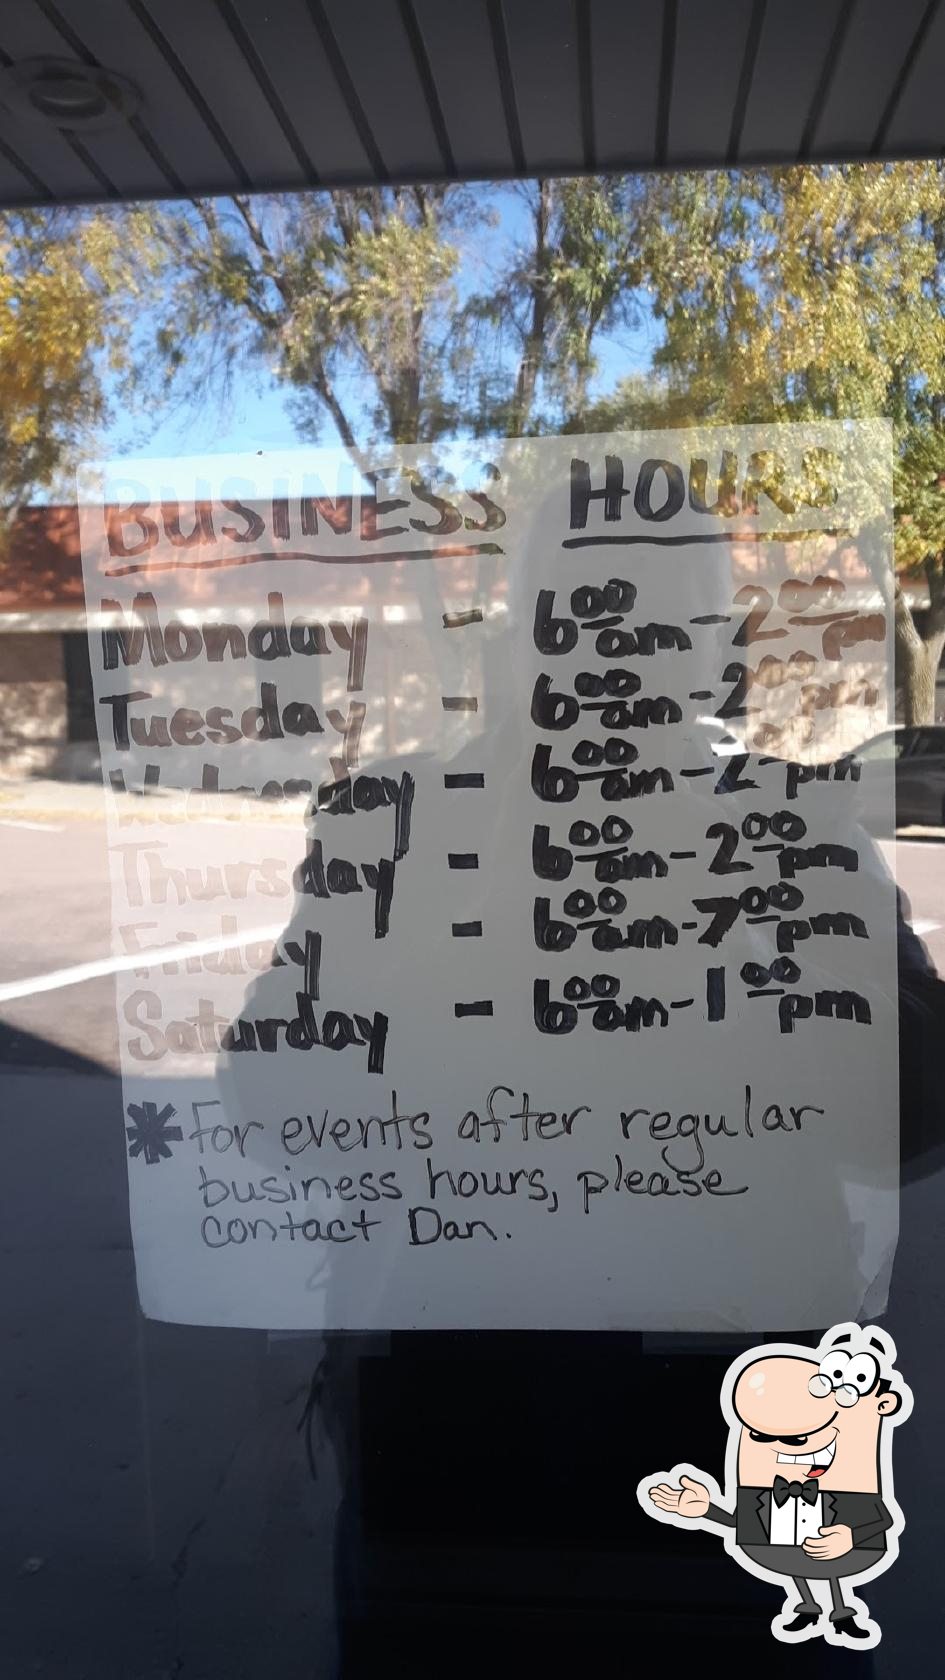 BUSINESS HOURS
Monday - 6:00 am - 2:00 pm
Tuesday - 6:00 am - 2:00 pm
Wednesday - 6:00 am - 2:00 pm
Thursday - 6:00 am - 2:00 pm
Friday - 6:00 am - 7:00 pm
Saturday - 6:00 am - 1:00 pm
* For events after regular
business hours, please
contact Dan.